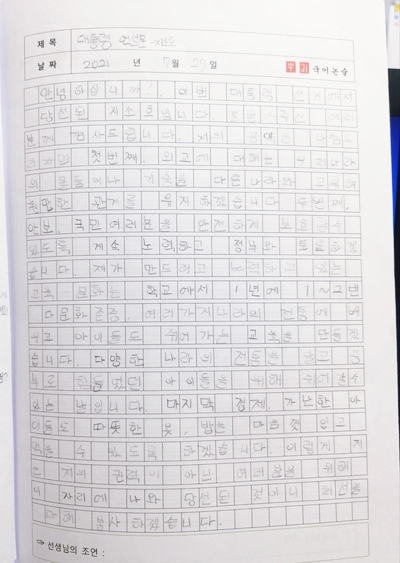 제 목 대통령 연설문
날 짜 2021 년 7월 29일 국어논술
안녕하십니까? 이번 대통령 선거에서
당선된 지소호입니다.
분께 감사드립니다. 저의
첫번째. 외교에 대해는 우리나라
의 물들이나 기술을 다른나라와
원만한 관계를 유지하겠습니다 두번째.
안보. 국민여러분을 안전하게 보호할수
있도록 계속 노력하고 정부와 토론하겠
습니다. 제가 만드려고 노력하고 있는
교육 문화는 학교에서 1년에 1~2번
다문화존중. 여러가지나라의 전통에 배
우고 아이들도 쉬어가는 교육을 만들겠
습니다. 다양한 나라의 전통을 알고 공
부로 힘들었던 아이들을 위해 쉬어갈수
있는 날입니다. 마지막 경제 가난한 아
이들도 따뜻한 옷, 밥을 마음껏 입고
먹을 수 있도록 하겠습니다. 이렇게 저
는 저의 권력이 아닌 여러분을 위해
이 자리에 나와 당선된 것이니 최선을
다해 봉사하겠습니다.
⇨ 선생님의 조언 :